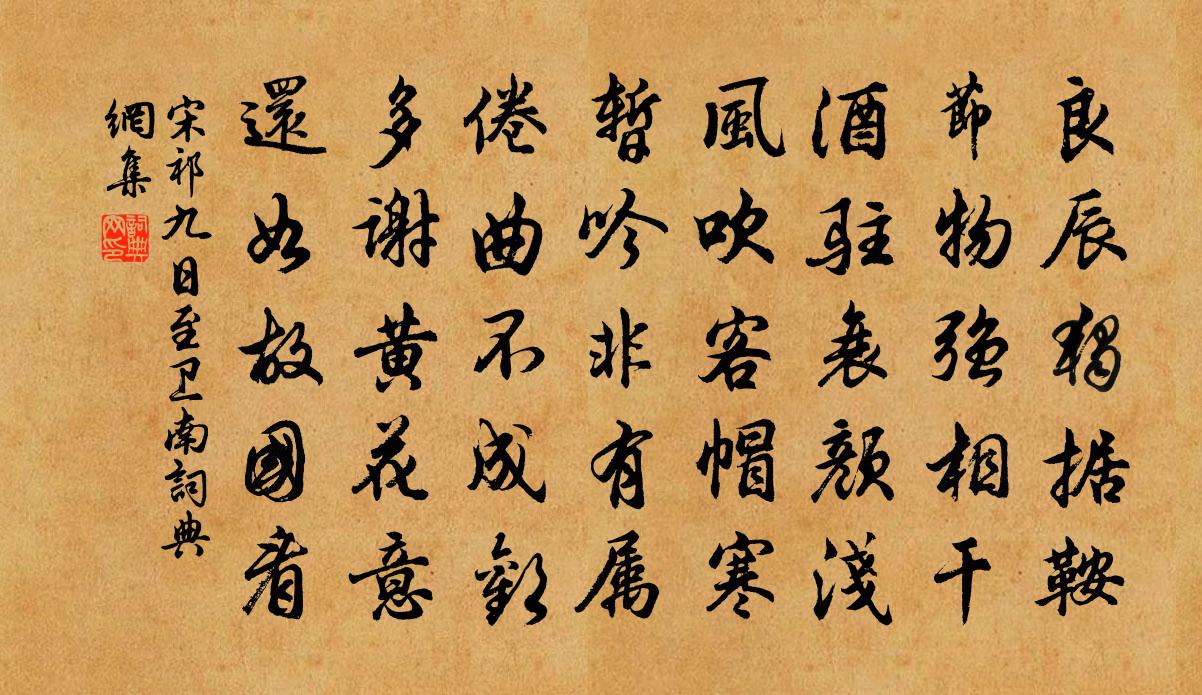 良辰獨据鞍
節物強相干
酒駐衰顏淺
風吹客帽寒
暫吟非有属
倦曲不成歡
多謝黄花意
還如故國看
宋祁九日至卫南詞典
網集
詞典
网印